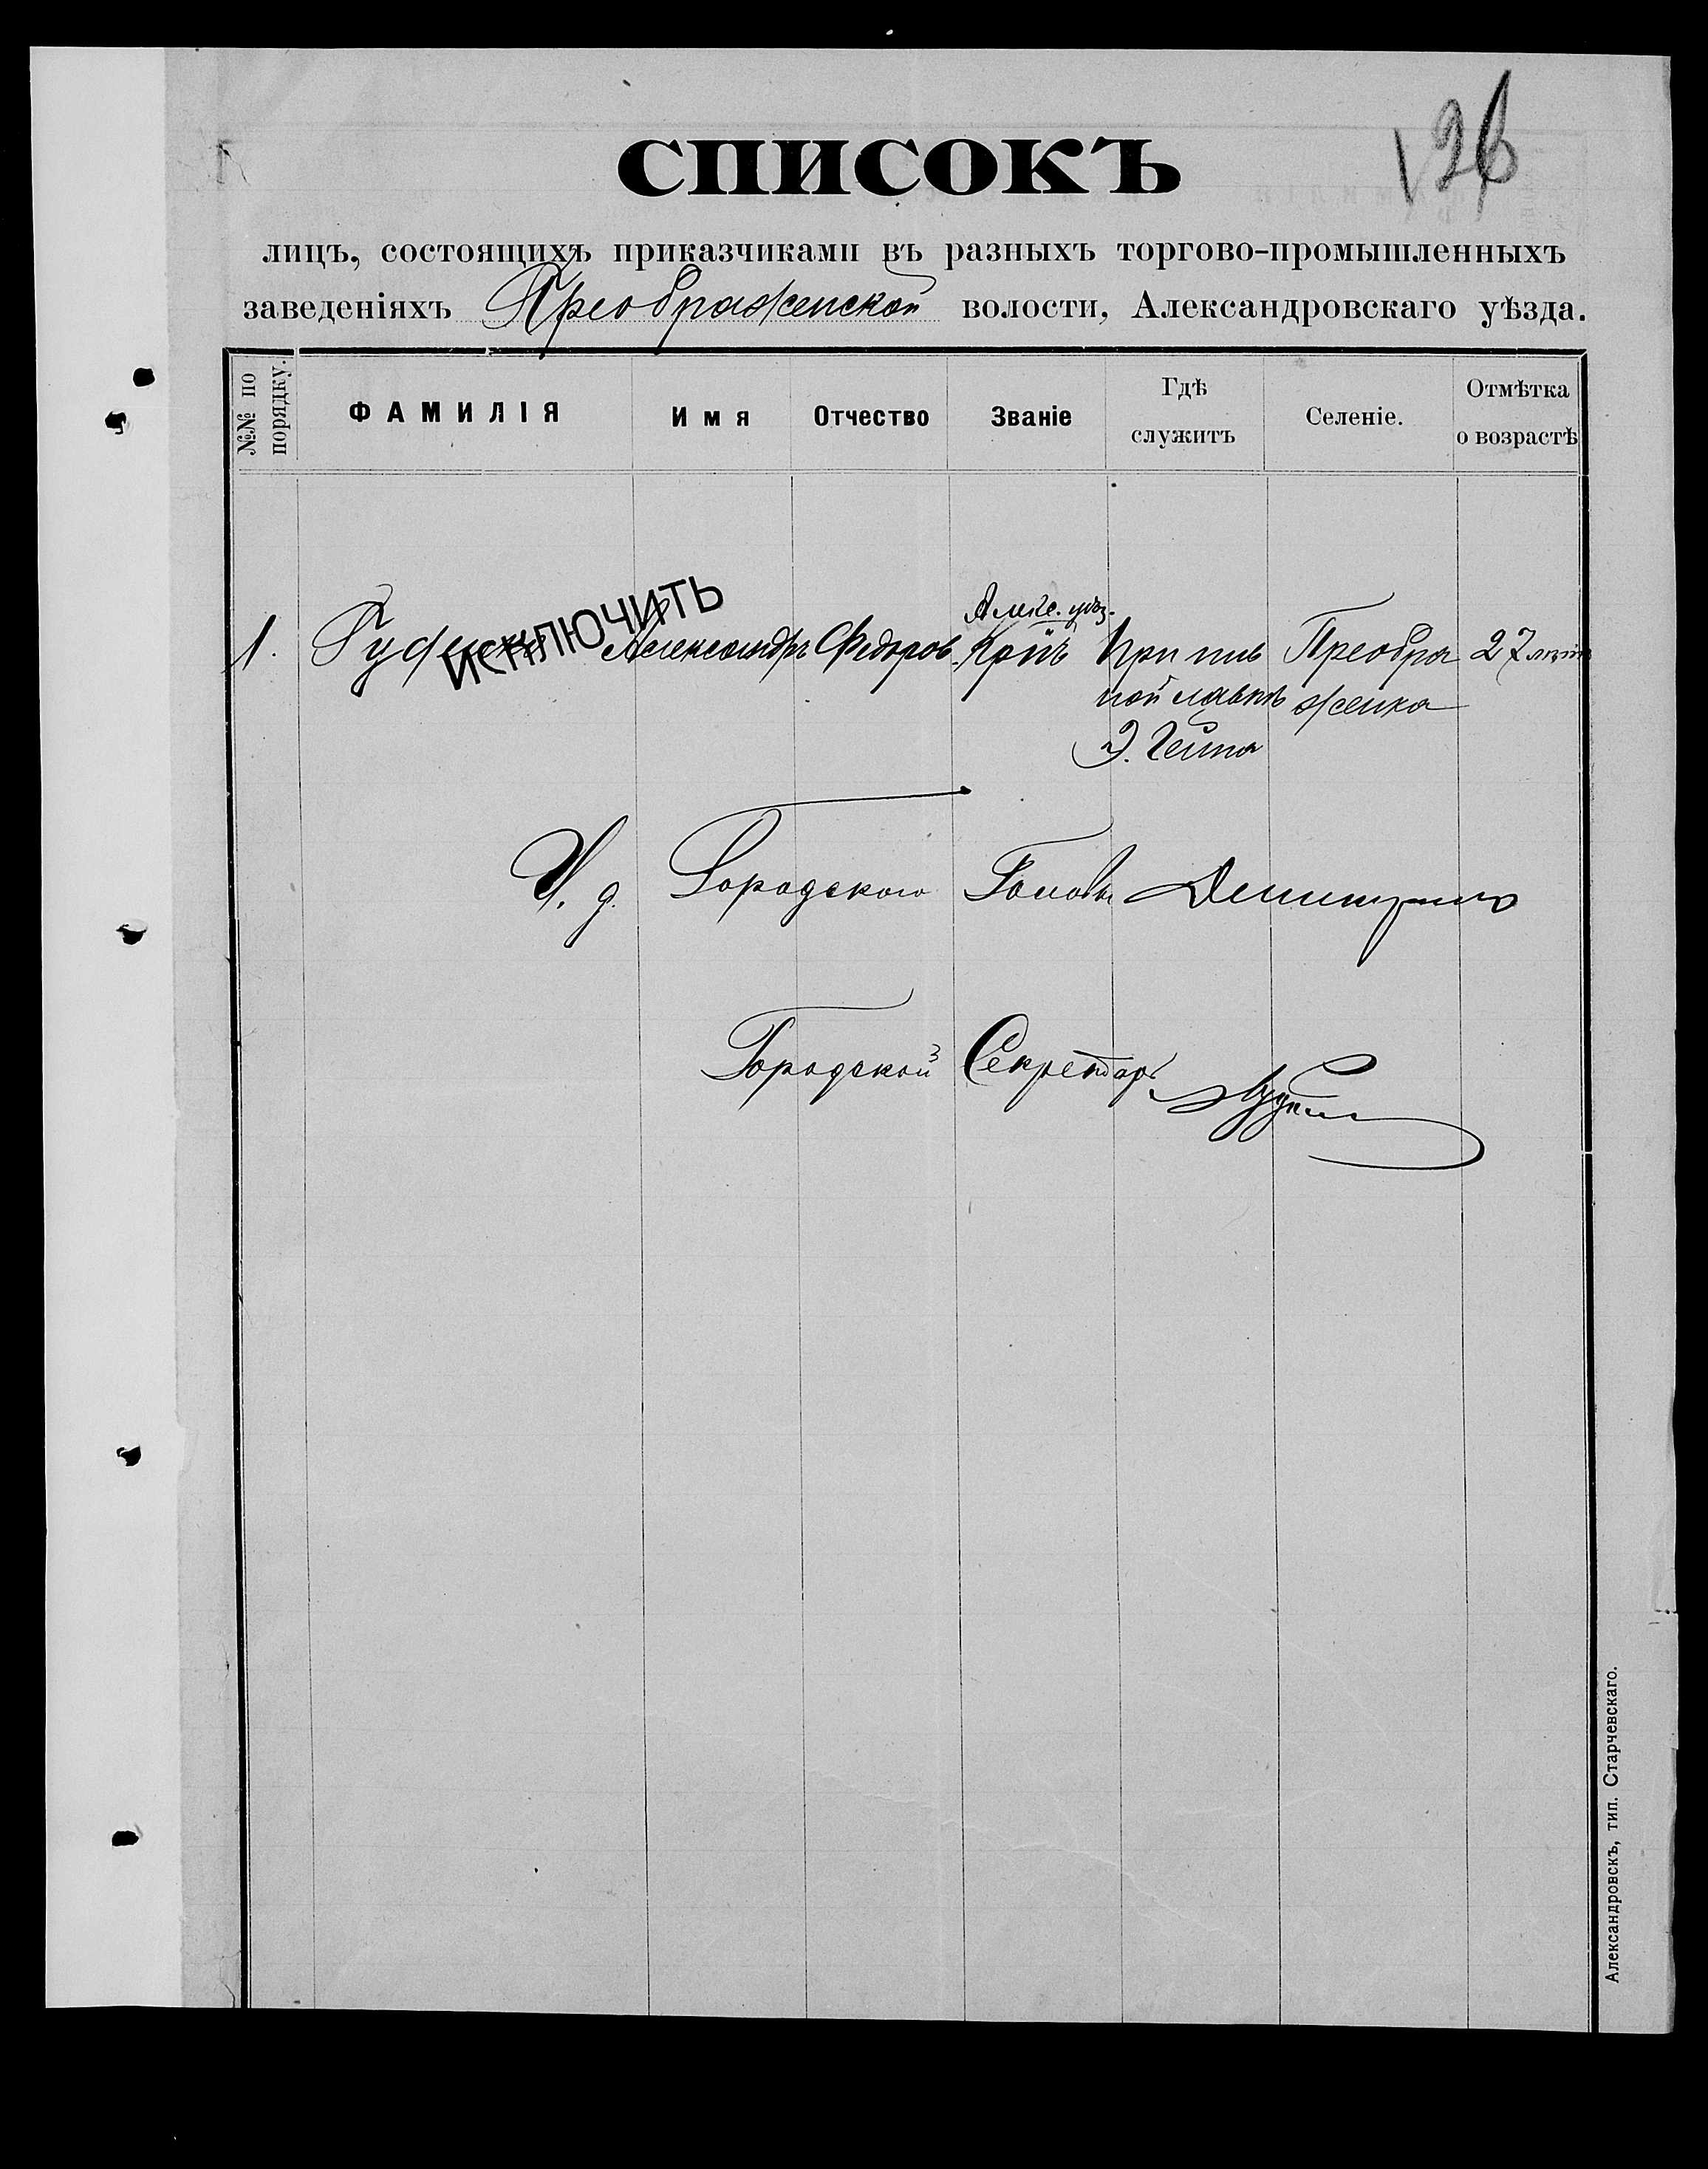 126
СПИСОКЪ
лицъ, состоящихъ приказчиками въ разныхъ торгово-промышленныхъ
заведеніяхъ Преображенской волости, Александровскаго уѣзда.
№№ по порядку.
ФАМИЛІЯ
Имя
Отчество
Званіе
Гдѣ служитъ
Селеніе.
Отмѣтка о возрастѣ
ИСКЛЮЧИТЬ
Алекс. уѣз.
1. Александръ Федоров. Кр-нъ При пив Преобра 27 лѣтъ
ной лавкѣ женка
Э.
И. д. Городского Головы
Городской Секретарь
Александровскъ, тип. Старчевскаго.